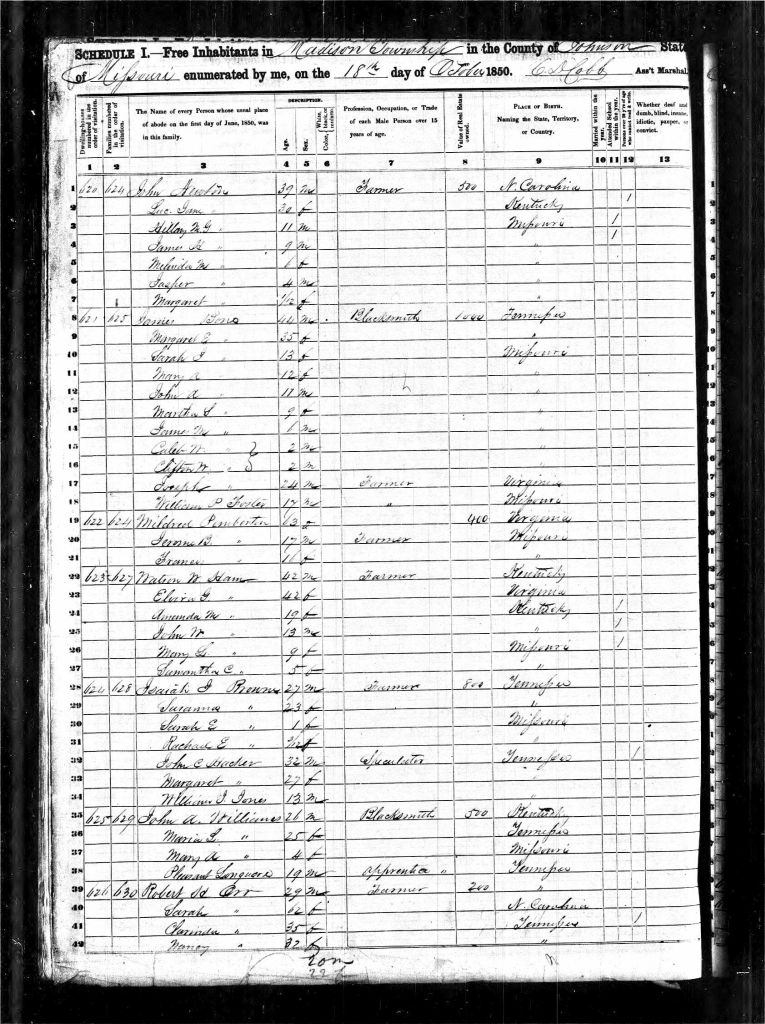 SCHEDULE I.—Free Inhabitants in Madison Township in the County of Johnson State
of Missouri enumerated by me, on the 18th day of October 1850. Ass't Marshal.
Dwelling-houses numbered in the order of visitation.
Families numbered in the order of visitation.
The Name of every Person whose usual place of abode on the first day of June, 1850, was in this family.
DESCRIPTION.
Age.
Sex.
Color, White, black, or mulatto.
Profession, Occupation, or Trade of each Male Person over 15 years of age.
Value of Real Estate owned.
PLACE OF BIRTH. Naming the State, Territory, or Country.
Married within the year.
Attended School within the year.
Whether deaf and dumb, blind, insane, idiotic, pauper, or convict.
1 2 3 4 5 6 7 8 9 10 11 12 13
1 620 624 John Newton 39 m Farmer 500 N. Carolina
2 " 20 f Kentucky 1
3 " 11 m Missouri 1
4 James H " 9 m " 1
5 Melinda M " 6 f "
6 Jasper " 4 m "
7 Margaret " f "
8 621 625 James 44 m Blacksmith 1000 Tennessee
9 Margaret E " 35 f "
10 Sarah J " 13 f Missouri
11 Mary A " 12 f "
12 John A " 11 m "
13 Martha S " 9 f "
14 James M " 6 m "
15 Caleb W " 2 m "
16 Clifton W " 2 m "
17 Joseph " 24 m Farmer Virginia
18 William P Foster 17 m " Missouri
19 622 626 Mildred Pemberton 63 f 400 Virginia
20 Jerome B " 17 m Farmer Missouri
21 Frances " 16 f "
22 623 627 Watson W Ham 42 m Farmer Kentucky
23 Elvira " 42 f Virginia
24 Amanda M " 19 f Kentucky 1
25 John W " 13 m " 1
26 Mary " 9 f Missouri 1
27 Samantha C " 5 f "
28 624 628 Isaiah J Browne 27 m Farmer 800 Tennessee
29 Susanna " 23 f "
30 Sarah E " 1 f Missouri
31 Rachael E " f "
32 John C 32 m Speculator Tennessee 1
33 Margaret " 27 f "
34 William J Jones 13 m "
35 625 629 John A. Williams 26 m Blacksmith 500 Kentucky
36 Maria L " 25 f Tennessee
37 Mary A " 4 f Missouri
38 Pleasant 19 m Apprentice " Tennessee
39 626 630 Robert H Orr 29 m Farmer 200 "
40 Sarah " 62 f N. Carolina
41 Clarinda " 35 f Tennessee 1
42 Nancy " 32 f "
20 m
22 f